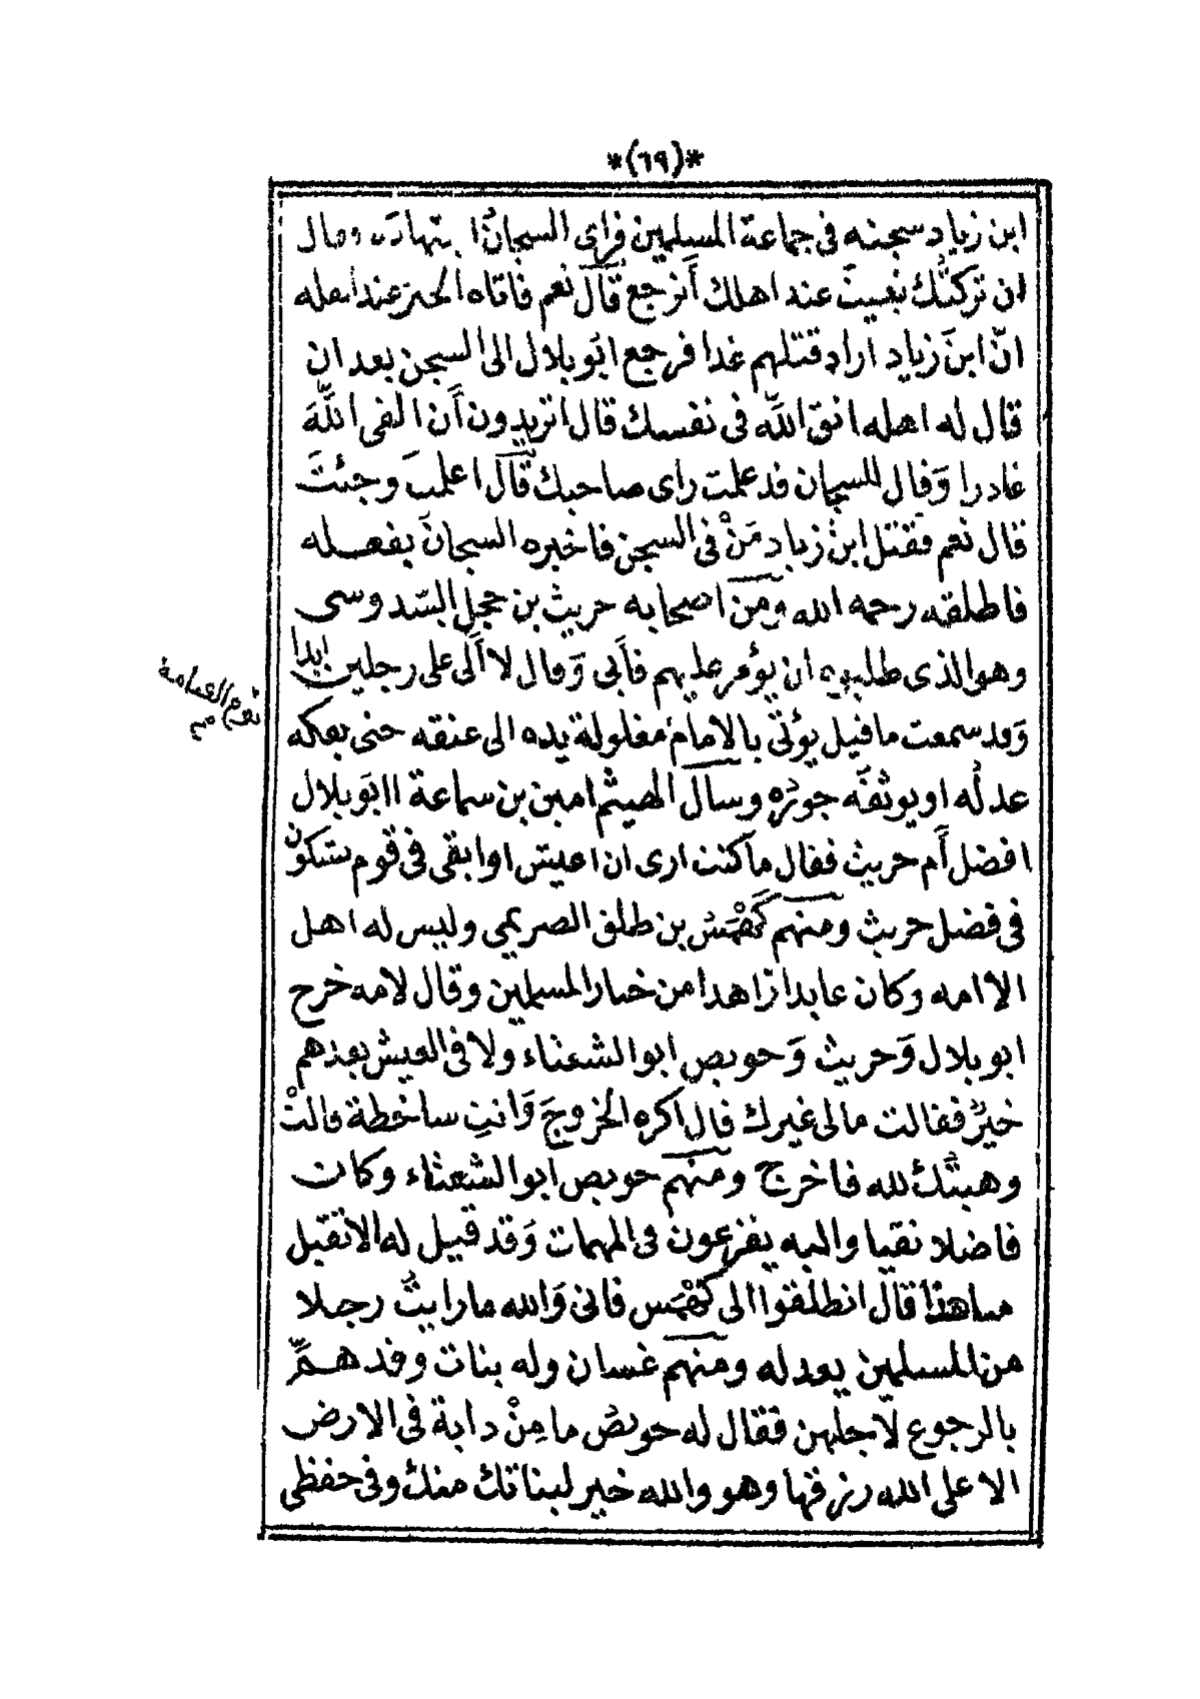 *(٦٩)*
ابن زياد سجنه فى جماعة المسلمين فراى السجانُ اجتهاده وقال
ان تركتُك تغيبت عند اهلك أترجع قال نعم فاتاه الخبر عند اهله
انّ ابنَ زياد اراد قتلهم غدا فرجع ابُو بلال الى السجن بعد ان
قال له اهله اتق اللّه فى نفسك قال اتريدون أن القى اللّهَ
غادرا وَقال للسجان قد علمت راى صاحبك قال اعلمتَ وجئتَ
قال نعم فقتل ابنُ زياد مَنْ فى السجن فاخبره السجانُ بفعله
فاطلقه رحمه الله ومَن اصحابه حريث بن حجل السّدوسى
وهو الذى طلبوه ان يؤمر عليهم فأبى وَقال لا أَلى على رجلين ابدا
وَقد سمعت ما قيل يؤتى بالامام مغلولة يده الى عنقه حتى يفكه
عدلُه او يوثقه جورُه وسأل الهيثم امين بن سماعة اابو بلال
افضل أم حريث فقال ما كنت ارى ان اعيش او ابقى فى قوم يشكون
فى فضل حريث ومنهم كَهْمَسُ بن طلق الصريمى وليس له اهل
الا امه وكان عابدا زاهدا من خيار المسلمين وقال لامه خرج
ابو بلال وَحريث وَحويص ابو الشعثاء ولا فى العيش بعدهم
خيرٌ فقالت مالى غيرك قال اكره الخروجَ وَانتِ ساخطة قالتْ
وهبتُك لله فاخرج ومنهم حويص ابو الشعثاء وكان
فاضلا تقيا واليه يفزعون فى المهمات وَقد قيل له الا تقبل
مساهذا قال انطلقوا الى كَهْمَس فانى وَالله ما رايتُ رجلا
من المسلمين يعدله ومنهم غسان وله بنات وقد هـمّ
بالرجوع لاجلهن فقال له حويصُ ما مِنْ دابة فى الارض
الا على الله رزقها وهو والله خير لبناتك منك وفى حفظى